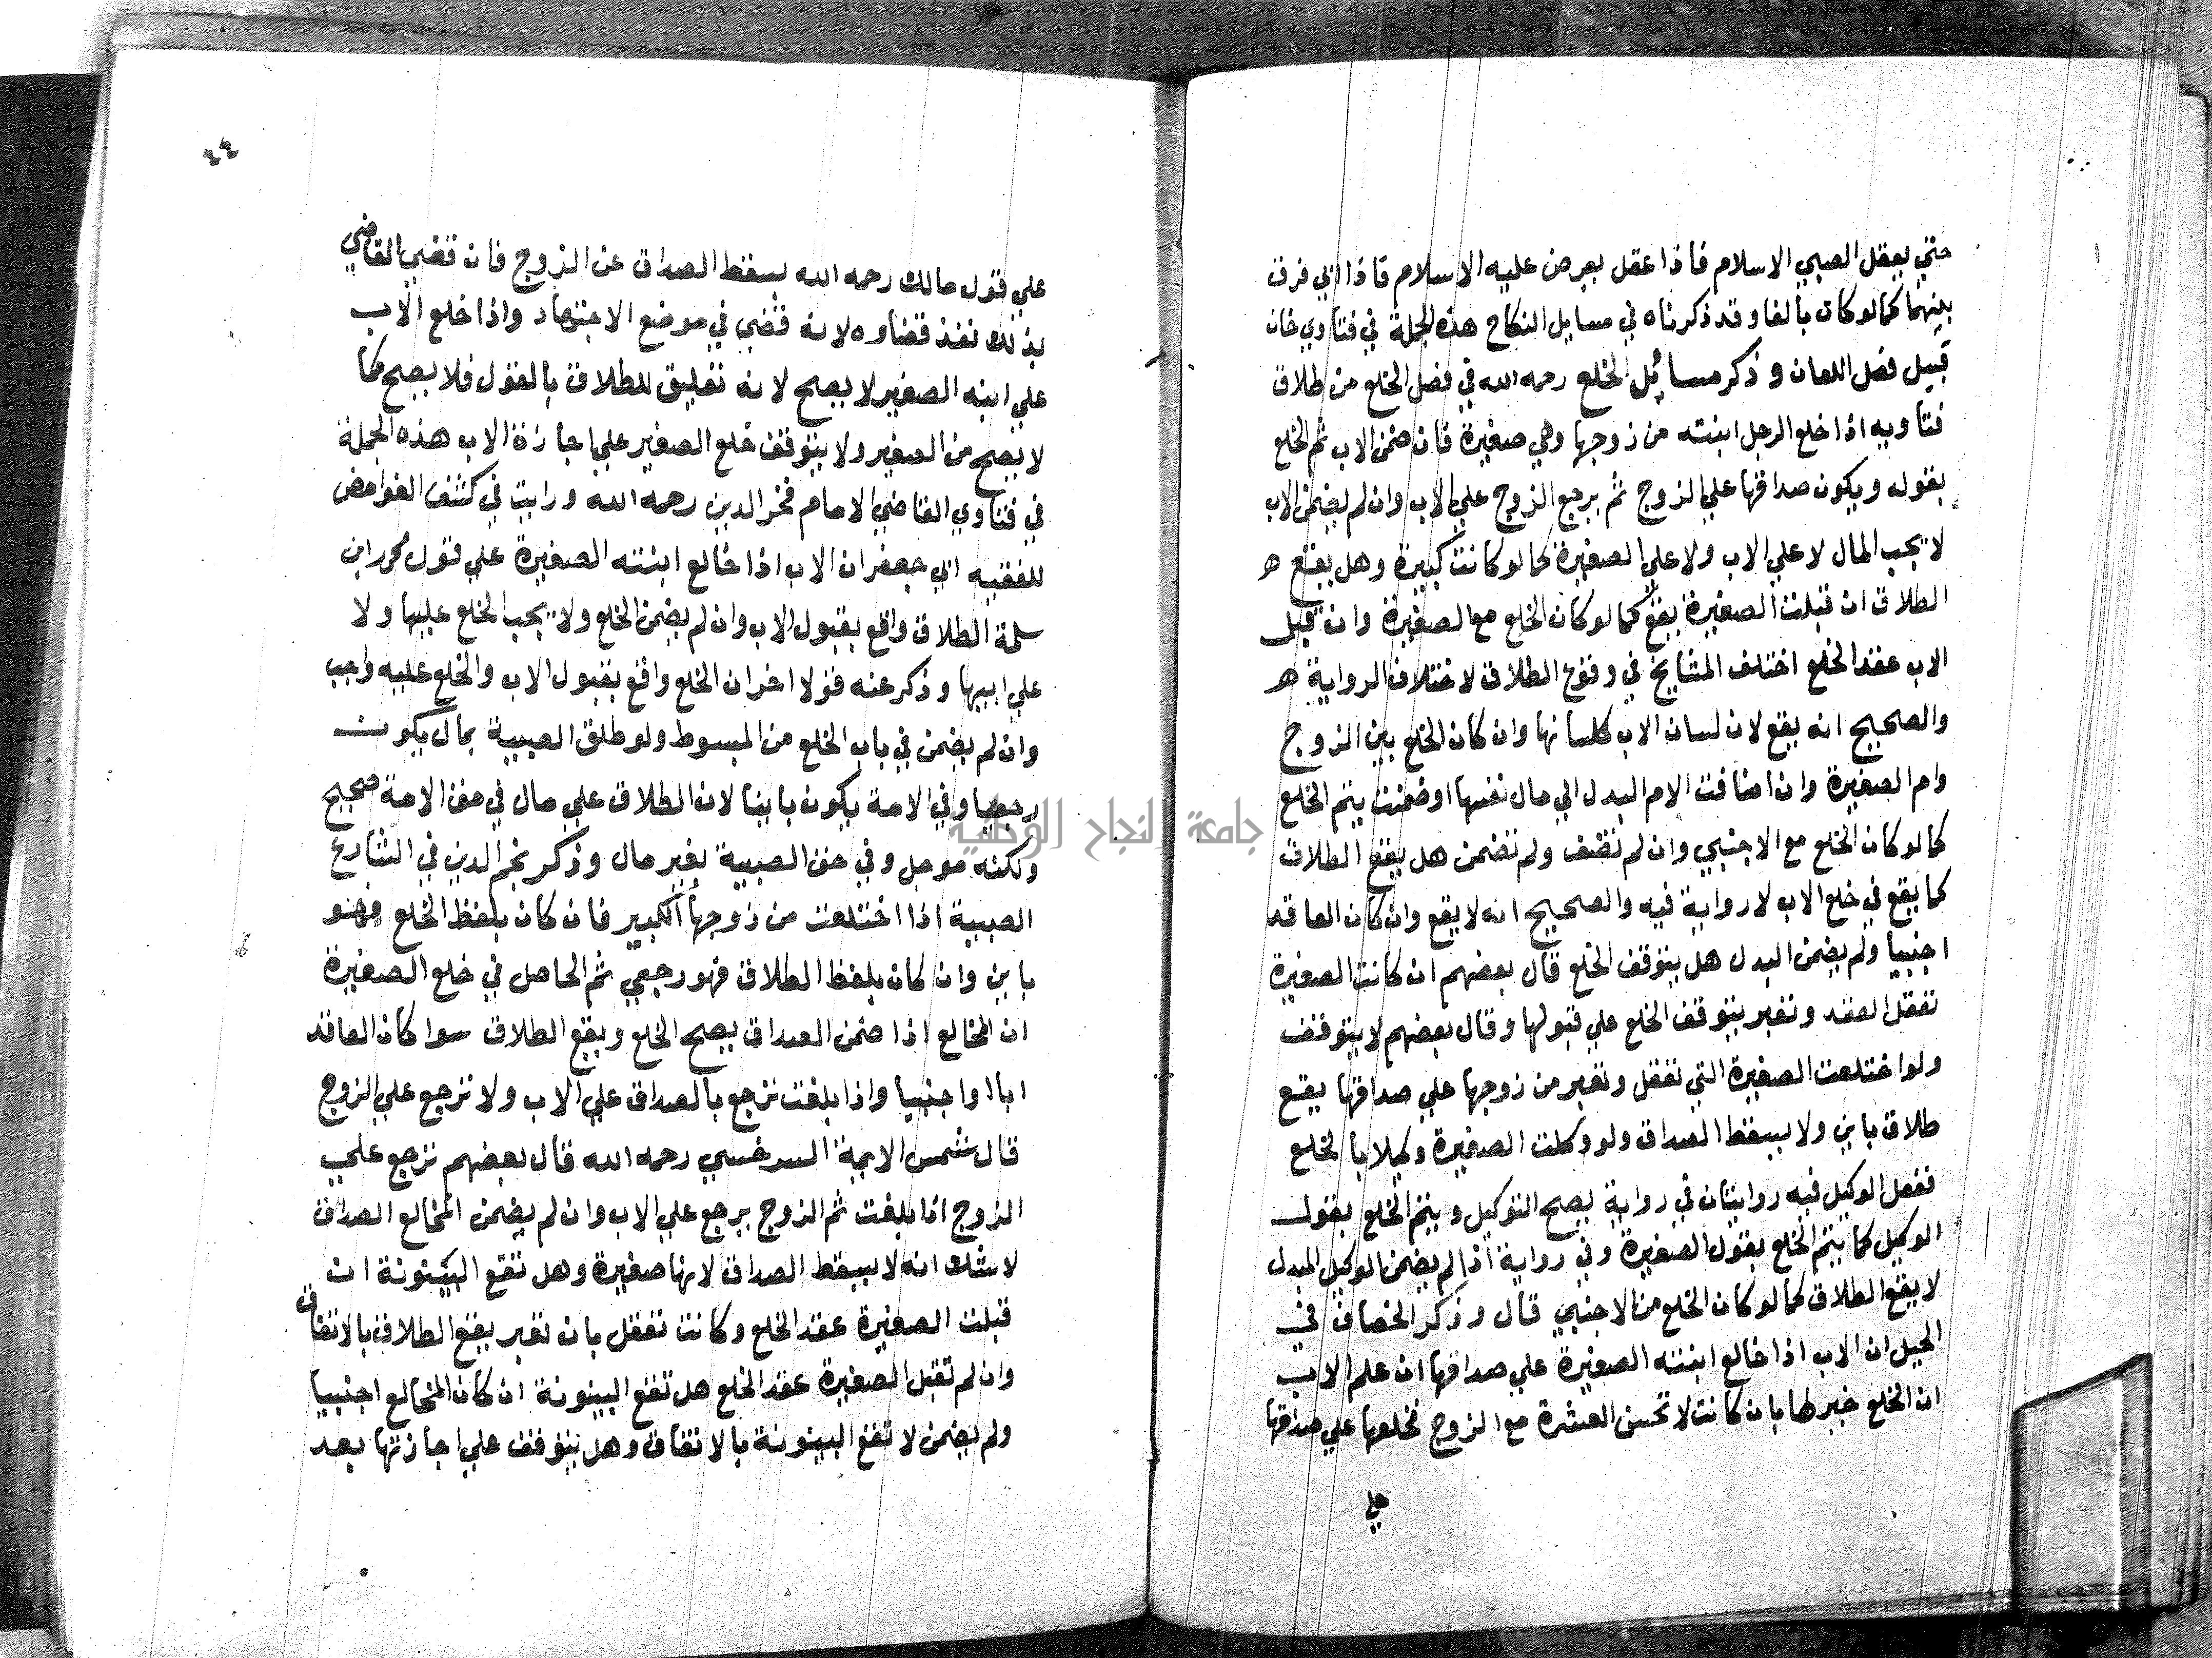 حتي يعقل الصبي الاسلام فاذا عقل يعرض عليه الاسلام فاذا ابي فرق
بينهما كما لو كان بالغا وقد ذكرناه في مسايل النكاح هذه الجملة في فتاوي خان
قبيل فصل اللعان و ذكر مسائل الخلع رحمه الله في فصل الخلع من طلاق
فتاويه اذا خلع الرجل ابنته من زوجها وهي صغيرة فان ضمن الاب تم الخلع
بقوله ويكون صداقها علي الزوج ثم يرجع الزوج علي الاب وان لم يضمن الاب
لا يجب المال لا علي الاب ولا علي الصغيرة كما لو كانت كبيرة وهل يقع ه
الطلاق ان قبلت الصغيرة يقع كما لو كان الخلع مع الصغيرة وان قبل
الاب عقد الخلع اختلف المشايخ في وقوع الطلاق لاختلاف الرواية ه
والصحيح انه يقع لان لسان الاب كلسانها وان كان الخلع بين الزوج
وام الصغيرة وان اضافت الام البدل الي مال نفسها او ضمنت يتم الخلع
كما لو كان الخلع مع الاجنبي وان لم تضف ولم تضمن هل يقع الطلاق
كما يقع في خلع الاب لا رواية فيه والصحيح انه لا يقع وان كان العاقد
اجنبيا ولم يضمن البدل هل يتوقف الخلع قال بعضهم ان كانت الصغيرة
تعقل العقد وتعبر يتوقف الخلع علي قبولها وقال بعضهم لا يتوقف
ولو اختلعت الصغيرة التي تعقل وتعبر من زوجها علي صداقها يقع
طلاق باين ولا يسقط الصداق ولو وكلت الصغيرة وكيلا بالخلع
ففعل الوكيل فيه روايتان في رواية يصح التوكيل ويتم الخلع بقول
الوكيل كما يتم الخلع بقول الصغيرة وفي رواية اذا لم يضمن الوكيل البدل
لا يقع الطلاق كما لو كان الخلع من الاجنبي قال وذكر الخصاف في
الحيل ان الاب اذا خالع ابنته الصغيرة علي صداقها ان علم الاب
ان الخلع خير لها بان كانت لا تحسن العشرة مع الزوج فخلعها علي صداقها
علي
٤٤
علي قول مالك رحمه الله يسقط الصداق عن الزوج فان قضي القاضي
بذلك نفذ قضاوه لانه قضي في موضع الاجتهاد واذا خلع الاب
علي ابنه الصغير لا يصح لانه تعليق للطلاق بالقول فلا يصح كما
لا يصح من الصغير ولا يتوقف خلع الصغير علي اجازة الاب هذه الجملة
في فتاوي القاضي الامام فخر الدين رحمه الله ورايت في كشف الغوامض
للفقيه ابي جعفر ان الاب اذا خالع ابنته الصغيرة علي قول محمد ابن
سلمة الطلاق واقع بقبول الاب وان لم يضمن الخلع ولا يجب الخلع عليها ولا
علي ابيها وذكر عنه قولا اخر ان الخلع واقع بقبول الاب والخلع عليه واجب
وان لم يضمن في باب الخلع من المبسوط ولو طلق الصبية بمال يكون
رجعيا وفي الامة يكون باينا لان الطلاق علي مال في حق الامة صحيح
ولكنه موجل وفي حق الصبية بغير مال وذكر نجم الدين في الشارع
الصبية اذا اختلعت من زوجها الكبير فان كان بلفظ الخلع فهو
باين وان كان بلفظ الطلاق فهو رجعي ثم الحاصل في خلع الصغيرة
ان المخالع اذا ضمن الصداق يصح الخلع ويقع الطلاق سوا كان العاقد
ابا او اجنبيا واذا بلغت ترجع بالصداق علي الاب ولا ترجع علي الزوج
قال شمس الايمة السرخسي رحمه الله قال بعضهم ترجع علي
الزوج اذا بلغت ثم الزوج يرجع علي الاب وان لم يضمن المخالع الصداق
لا شك انه لا يسقط الصداق لانها صغيرة وهل تقع البينونة ان
قبلت الصغيرة عقد الخلع وكانت تعقل بان تعبر يقع الطلاق بالاتفاق
وان لم تقبل الصغيرة عقد الخلع هل تقع البينونة ان كان المخالع اجنبيا
ولم يضمن لا تقع البينونة بالاتفاق وهل يتوقف علي اجازتها بعد
جامعة النجاح الوطنية